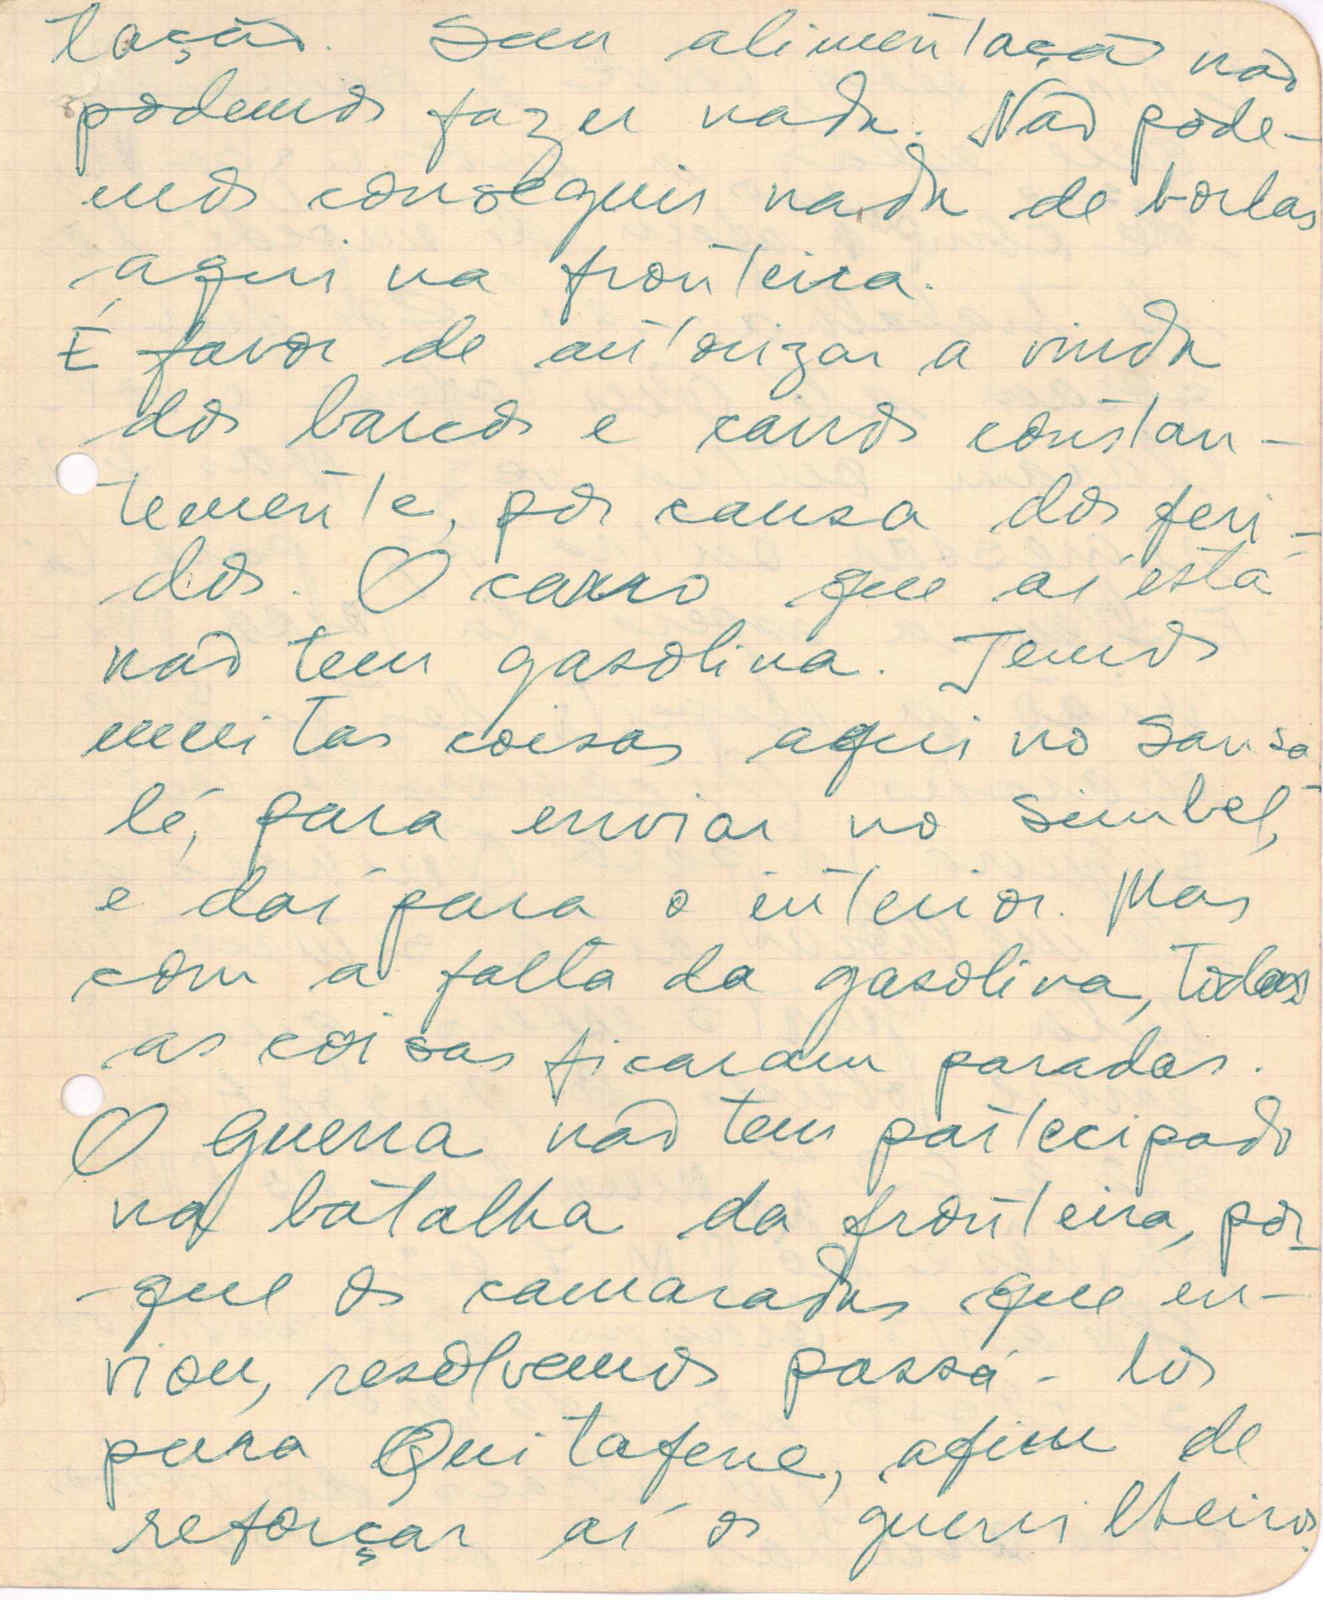 tação. Sem alimentação não
podemos fazer nada. Não pode-
mos conseguir nada de borlas
aqui na fronteira.
É favor de autorizar a vinda
dos barcos e carros constan-
temente, por causa dos feri-
dos. O carro que aí está
não tem gasolina. Temos
muitas coisas aqui no Sansa-
lé, para enviar no Simbel,
e daí para o interior. Mas
com a falta da gasolina, todas
as coisas ficaram paradas.
O Guerra não tem partecipado
na batalha da fronteira, por-
-que os camaradas que en-
viou, resolvemos passá-los
para Quitafene, afim de
reforçar aí os guerrilheiros.